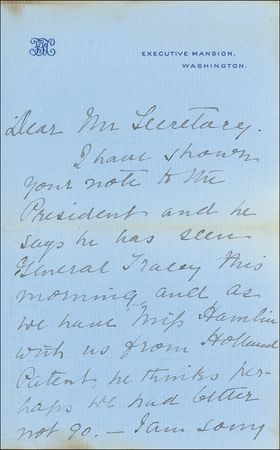 EXECUTIVE MANSION,
WASHINGTON.
Dear Mr Secretary.
I have shown
your note to the
President and he
says he has seen
General Tracey this
morning and as
we have Miss Hamlin
with us from Holland
Patent, he thinks per-
haps we had better
not go. — I am sorry